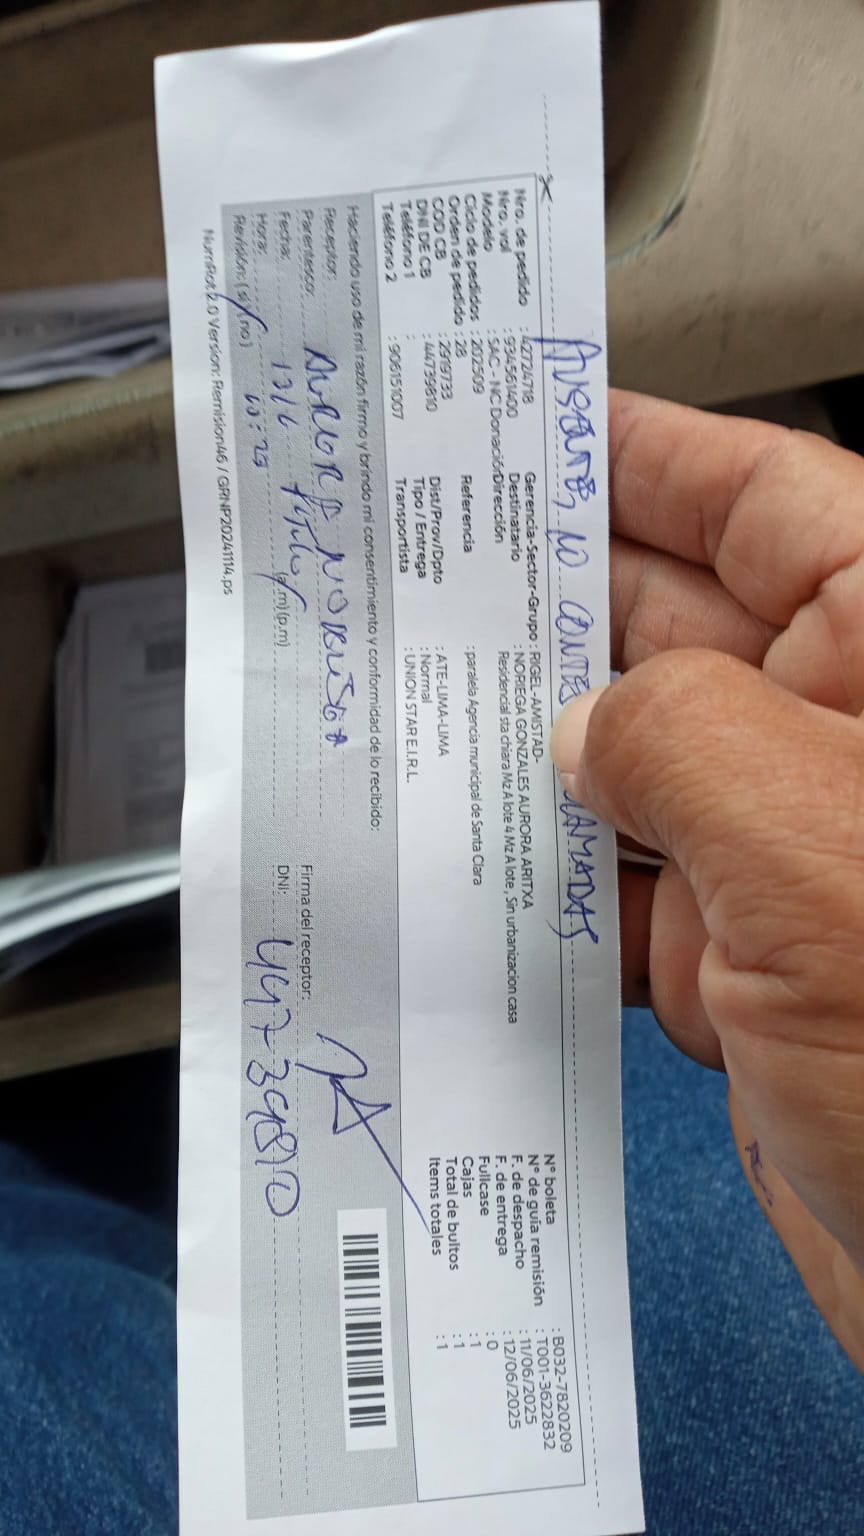 AUSENTE, NO CONTES LLAMADAS
Nro. de pedido : 42724718 Gerencia-Sector-Grupo : RIGEL-AMISTAD- N° boleta : B032-7820209
Nro. vol : 934561400 Destinatario : NORIEGA GONZALES AURORA ARITXA N° de guía remisión : T001-3622832
Modelo : SAC- NC Donación Dirección Residencial sta chiara Mz A lote 4 Mz A lote , Sin urbanizacion casa F. de despacho : 11/06/2025
Ciclo de pedidos : 202509 F. de entrega : 12/06/2025
Orden de pedido : 28 Referencia : paralela Agencia municipal de Santa Clara Fullcase : 0
COD CB : 2919733 Cajas : 1
DNI DE CB : 44739810 Dist/Prov/Dpto : ATE-LIMA-LIMA Total de bultos : 1
Teléfono 1 : Tipo / Entrega : Normal Items totales : 1
Teléfono 2 : 906151007 Transportista : UNION STAR E.I.R.L.
Haciendo uso de mi razón firmo y brindo mi consentimiento y conformidad de lo recibido:
Receptor: AURORA NORIEGA
Parentesco: titular Firma del receptor:
Fecha: 12/6 DNI: 44739810
Hora: (a.m)(p.m)
Revisión: ( si ) ( no )
NumRot 2.0 Version: Remision46 / GRNP20241114.ps